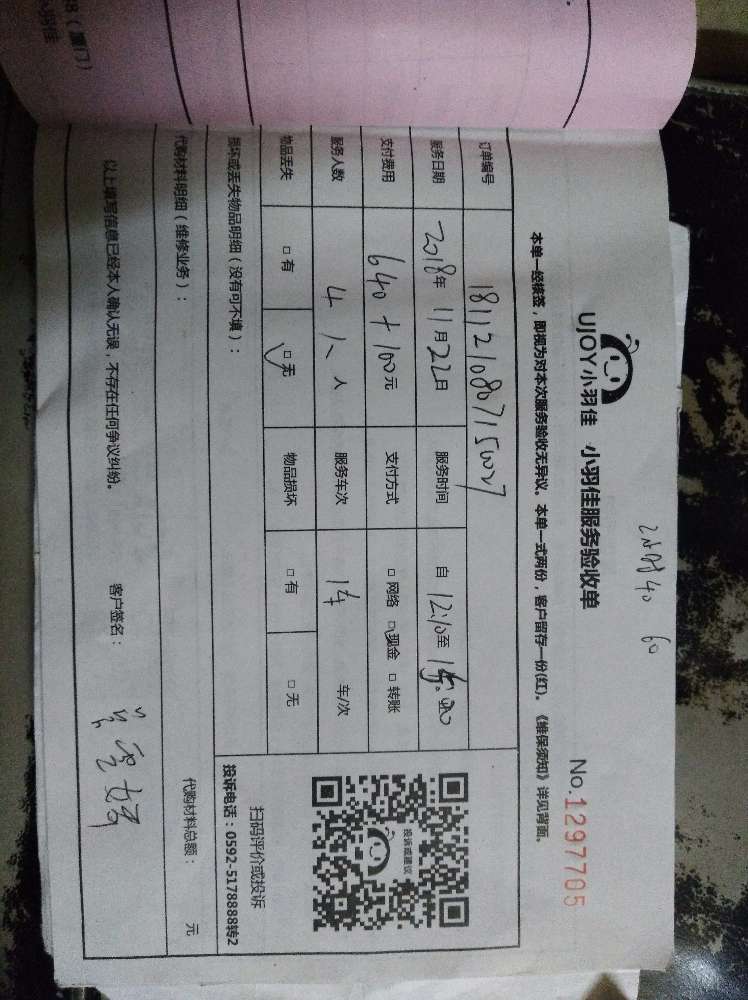 8（厦门）
小羽佳
2小时40 60
UJOY小羽佳 小羽佳服务验收单
No.1297705
本单一经核签，即视为对本次服务验收无异议。本单一式两份，客户留存一份(红)。《维保须知》详见背面。
订单编号
服务日期 2018年11月22日 服务时间 自12:10至15:00
支付费用 640+100元 支付方式 □网络 □现金 □转账
服务人数 4人 人 服务车次 1车 车/次
物品丢失 □有 □无 物品损坏 □有 □无
损坏或丢失物品明细（没有可不填）：
代购材料明细（维修业务）： 代购材料总额： 元
以上填写信息已经本人确认无误，不存在任何争议纠纷。 客户签名：
投诉或建议
扫码评价或投诉
投诉电话：0592-5178888转2